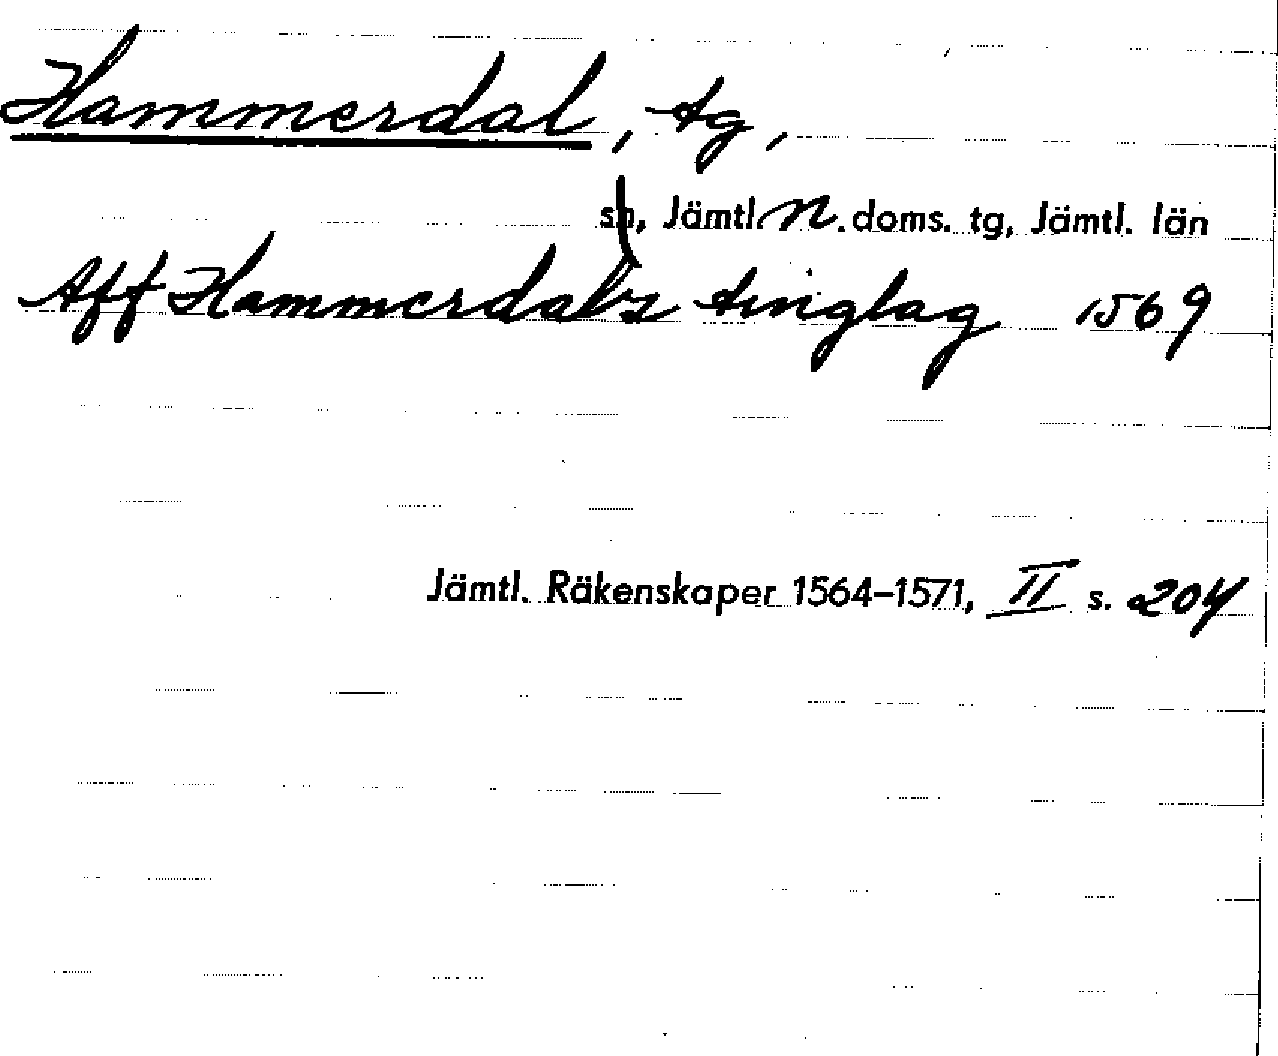 Hammerdal, tg,
sn, Jämtl. n. doms. tg, Jämtl. län
Aff Hammerdals tinglag 1569
Jämtl. Räkenskaper 1564–1571, II s. 204